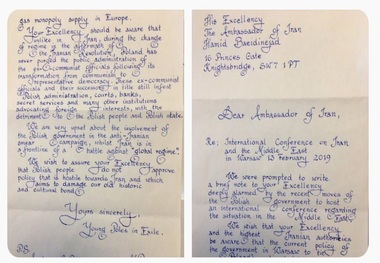 His Excellency
The Ambassador of Iran
Hamid Baeidinejad
16 Princes Gate
Knightsbridge, SW7 1PT
Dear Ambassador of Iran,
Re: International Conference on Iran
and the Middle East
in Warsaw 13 February 2019
We were prompted to write
a brief note to your Excellency
deeply alarmed by the recent moves
of the Polish government to host
an international conference regarding
the situation in the Middle East.
We wish that your Excellency
and the highest Iranian authorities
be aware that the current policy of
the government in Warsaw to tie
gas monopoly supply in Europe.
Your Excellency should be aware that
unlike in Iran, during the change
of regime in the aftermath of
the Iranian Revolution, Poland has
never purged the public administration of
the ex-communist officials following its
transformation from communism to
representative democracy. These ex-communist
officials and their successors in title still infest
Polish administration, courts, banks,
secret services and many other institutions
advocating foreign interests, with the
detriment to the Polish people and Polish state.
We are very upset about the involvement of
the Polish government in the anti-Iranian
smear campaign, whilst Iran is in
a frontline of a battle against "global regime".
We wish to assure your Excellency
that Polish people do not approve
policy that is hostile towards Iran and which
aims to damage our old historic
and cultural bond.
Yours sincerely,
Young Poles in Exile.
PS.